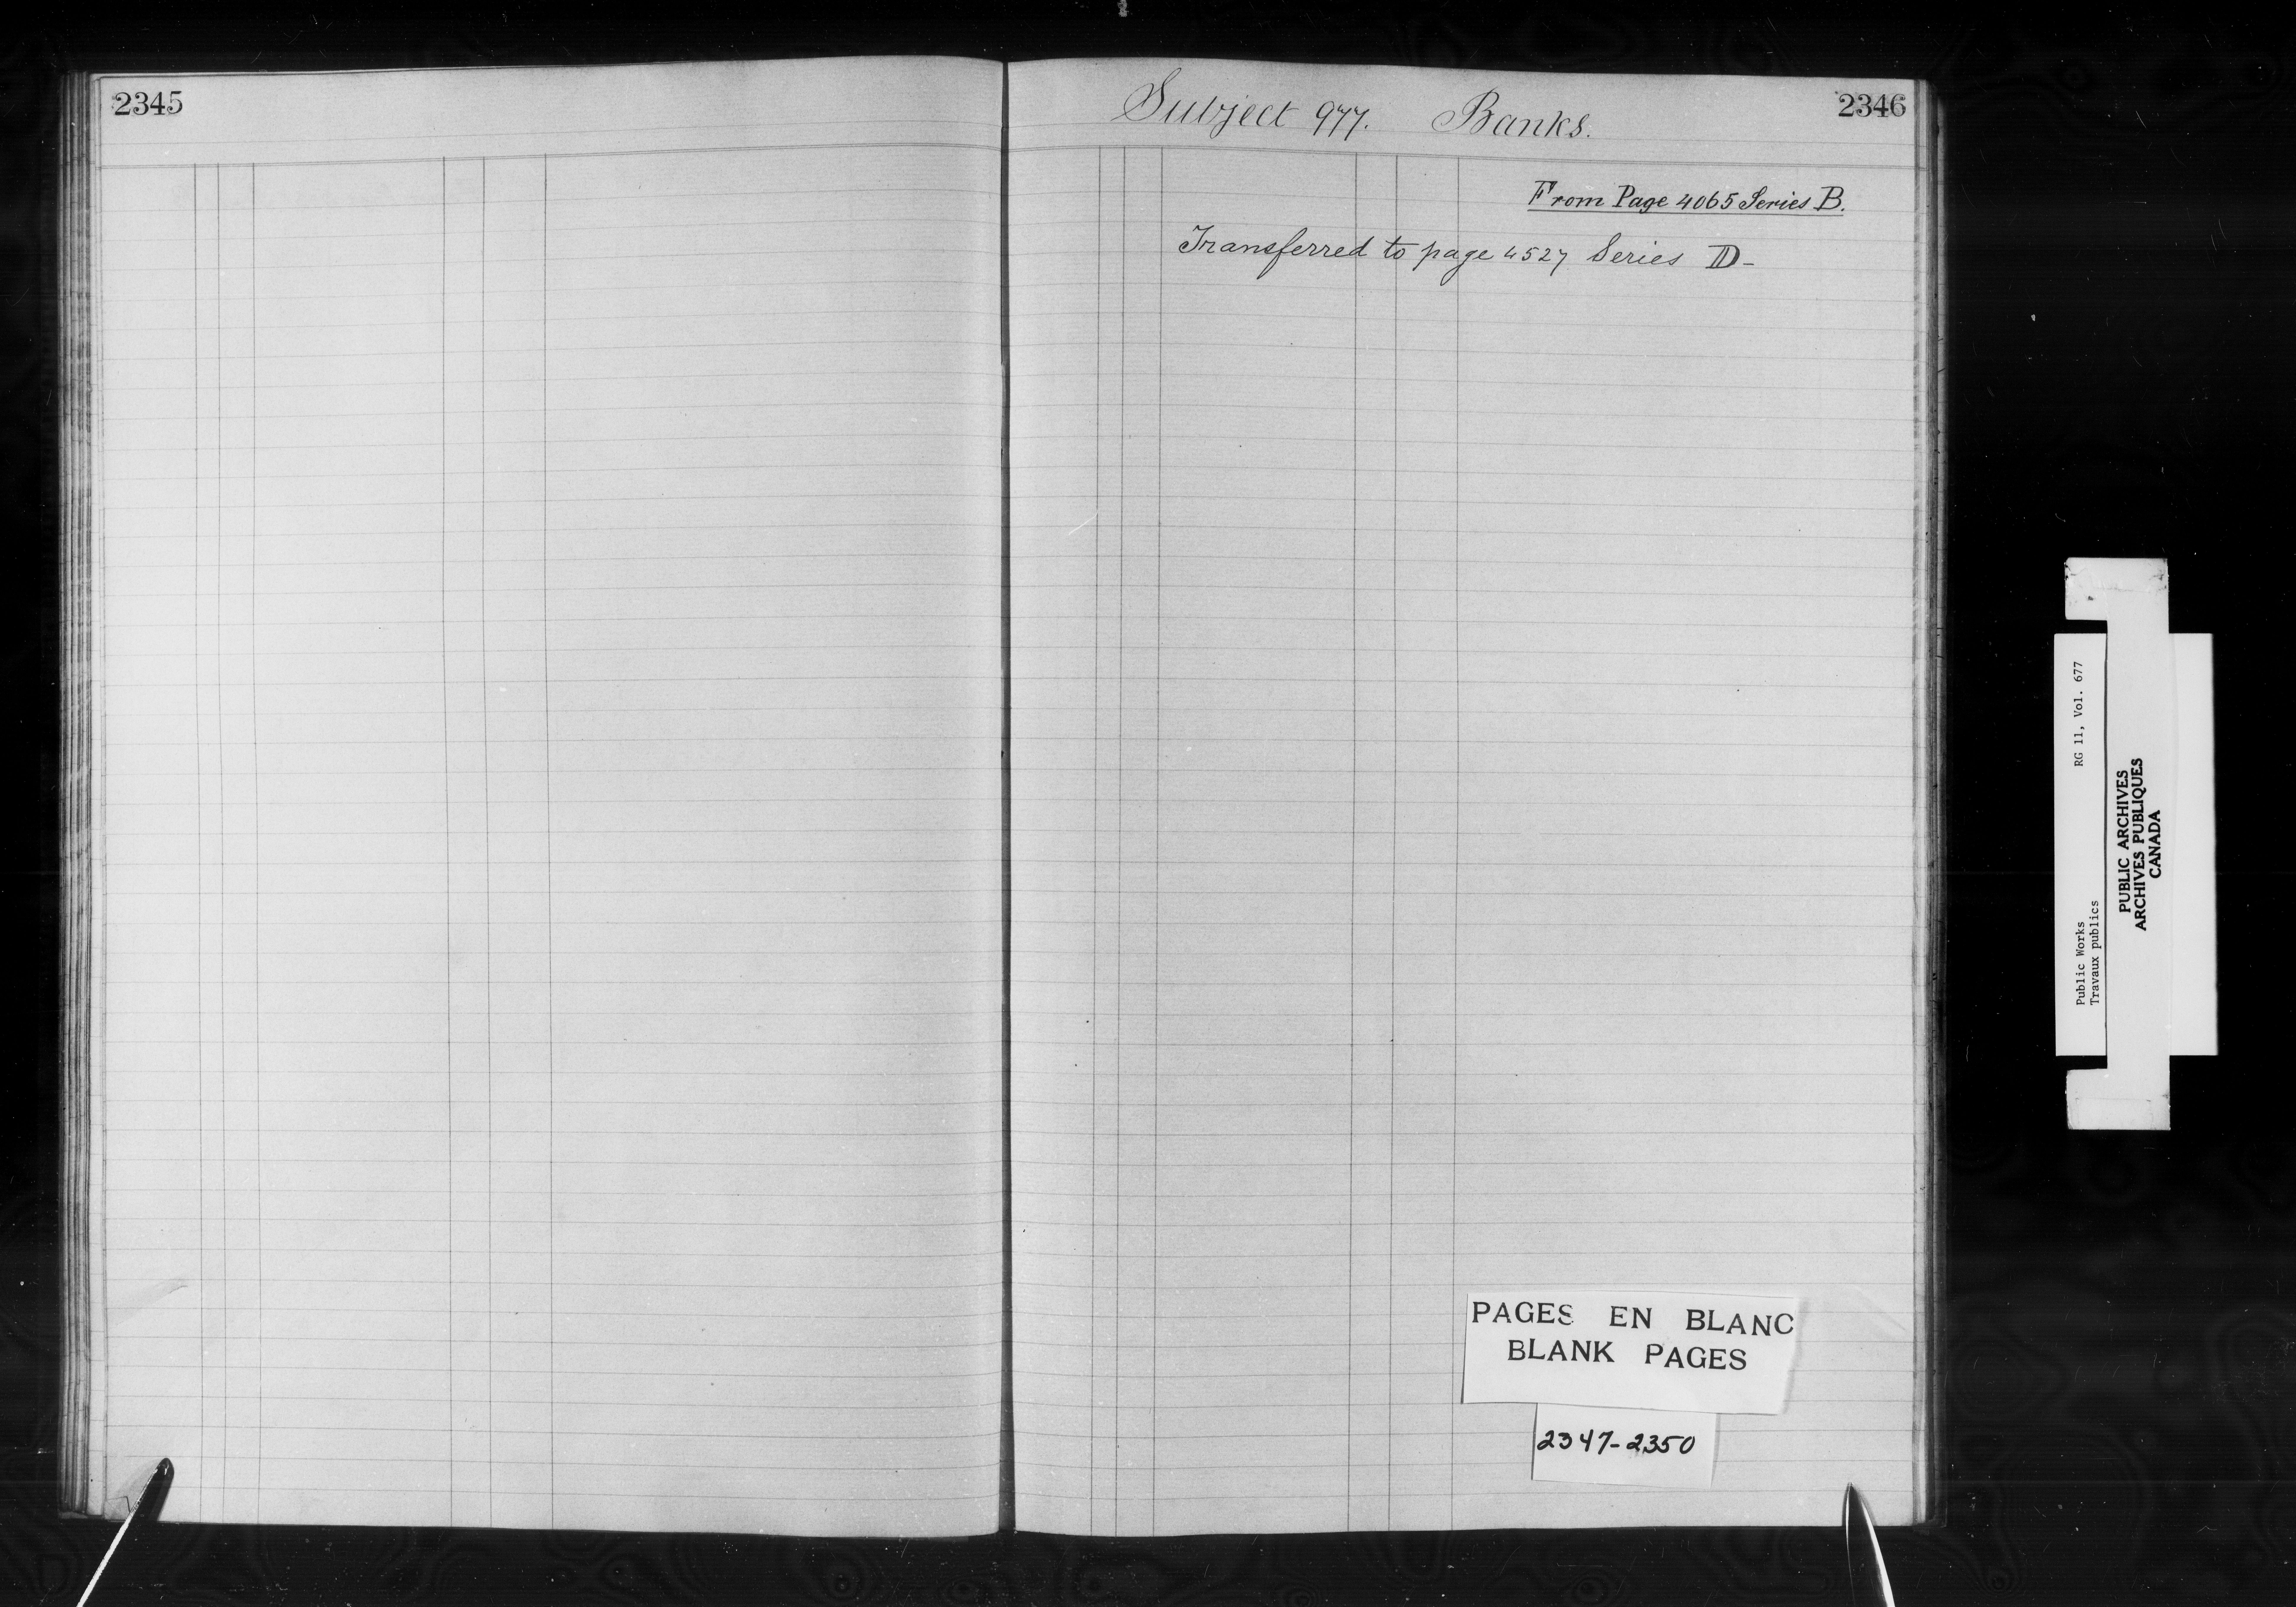 2345
Subject 977. Banks.
2346
From Page 4065 Series B.
Transferred to page 4527 Series D-
PAGES EN BLANC
BLANK PAGES
2347-2350
Public Works
Travaux publics
RG 11, Vol. 677
PUBLIC ARCHIVES
ARCHIVES PUBLIQUES
CANADA